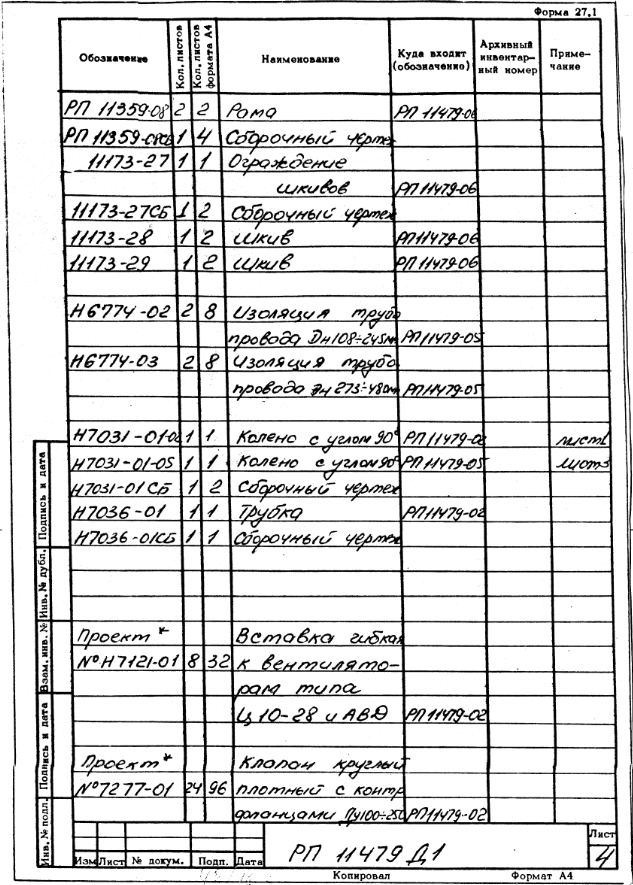 Форма 27.1
Обозначение Кол. листов Кол. листов формата А4 Наименование Куда входит (обозначение) Архивный инвентарный номер Примечание
РП 11359-08 2 2 Рама РП 11479-06
РП 11359-08СБ 1 4 Сборочный чертеж
11173-27 1 1 Ограждение
шкивов РП11479-06
11173-27СБ 1 2 Сборочный чертеж
11173-28 1 2 Шкив РП11479-06
11173-29 1 2 Шкив РП11479-06
Н6774-02 2 8 Изоляция трубо
провода Дн108÷245мм РП11479-05
Н6774-03 2 8 Изоляция трубо
провода Дн 273÷480мм РП11479-05
Н7031-01-02 1 1 Колено с углом 90° РП11479-02 лист1
Н7031-01-05 1 1 Колено с углом 90° РП11479-05 лист3
Н7031-01СБ 1 2 Сборочный чертеж
Н7036-01 1 1 Трубка РП11479-02
Н7036-01СБ 1 1 Сборочный чертеж
Проект* Вставка гибкая
№Н7121-01 8 32 к вентилято-
рам типа
Ц10-28 и АВД РП11479-02
Проект* Клапан круглый
№7277-01 24 96 плотный с контр
фланцами Ду100÷250 РП11479-02
Инв. № подл. Подпись и дата Взам. инв. № Инв. № дубл. Подпись и дата
Изм Лист № докум. Подп. Дата
РП 11479 Д1
Лист
4
Копировал Формат А4